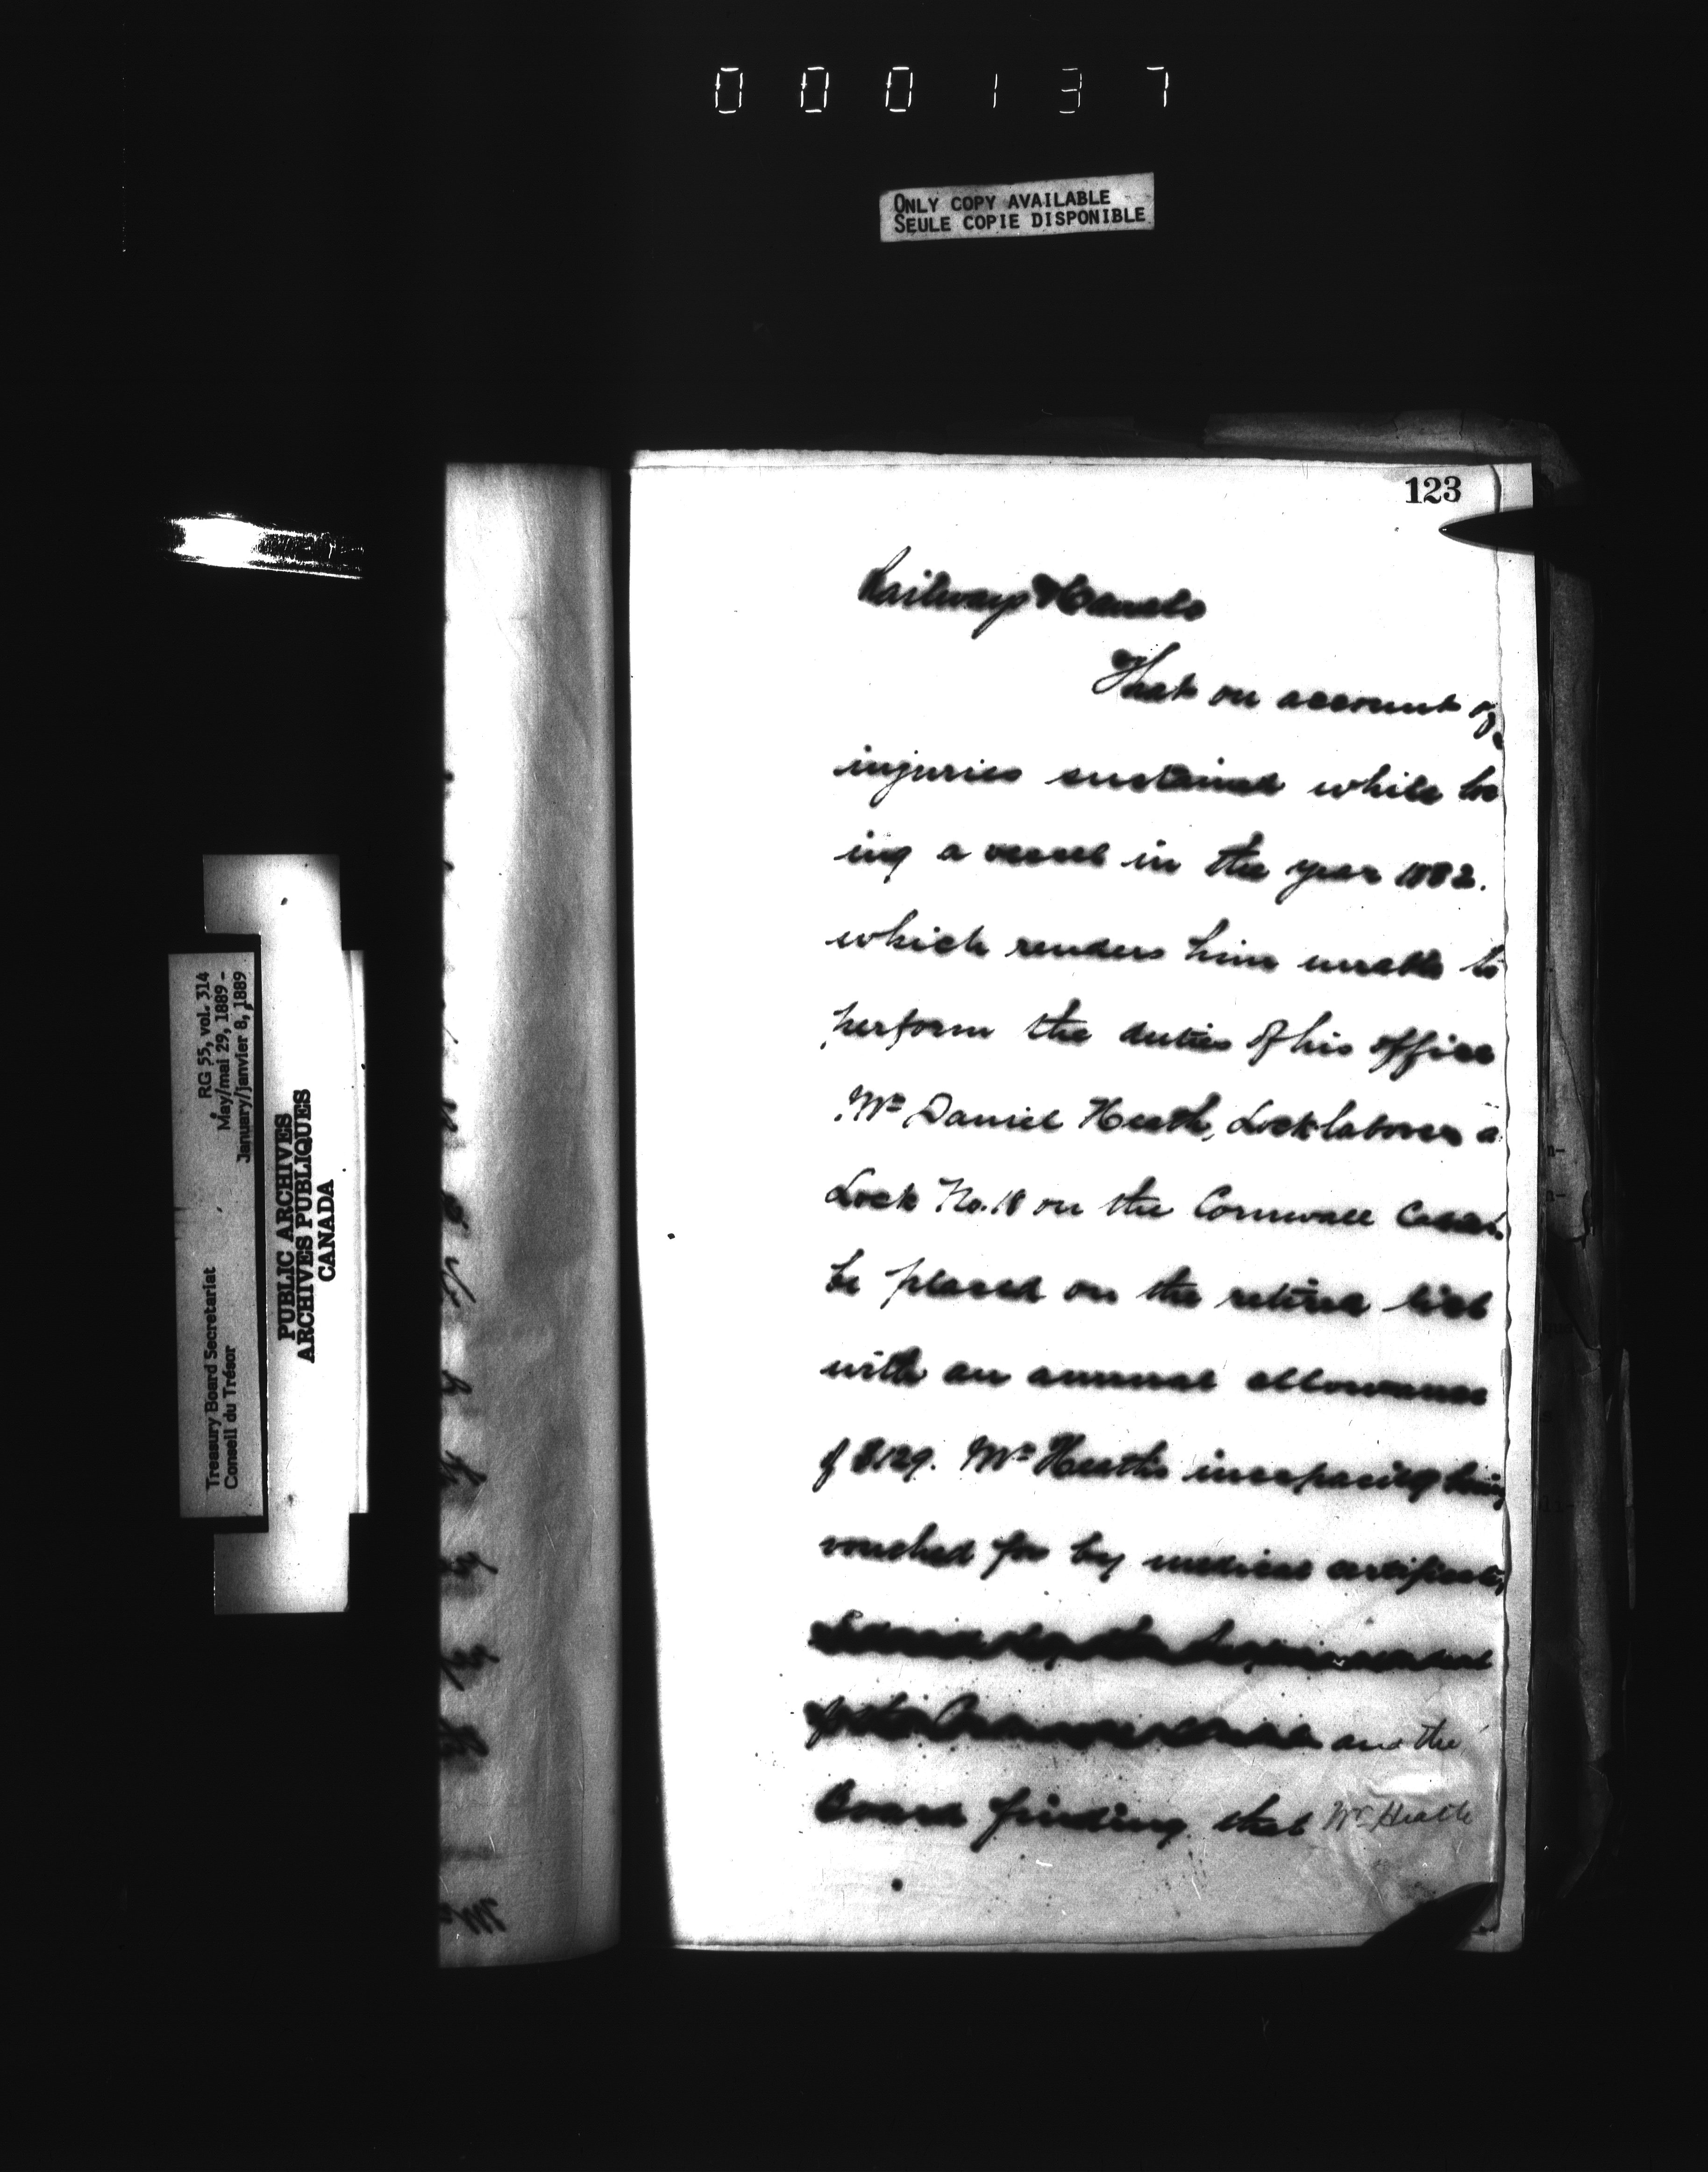 000137
ONLY COPY AVAILABLE
SEULE COPIE DISPONIBLE
Treasury Board Secretariat
Conseil du Trésor
RG 55, vol. 314
May/mai 29, 1889 -
January/janvier 8, 1889
PUBLIC ARCHIVES
ARCHIVES PUBLIQUES
CANADA
123
Railways & Canals
That on account of
injuries sustained while loc
ing a vessel in the year 1882.
which renders him unable to
perform the duties of his office
Mr Daniel Heath, Lock laborer a
Lock No. 18 on the Cornwall Canal.
be placed on the retired list
with an annual allowance
of $129. Mr Heath's incapacity being
vouched for by medical certificate,
and the
Board finding that Mr Heath